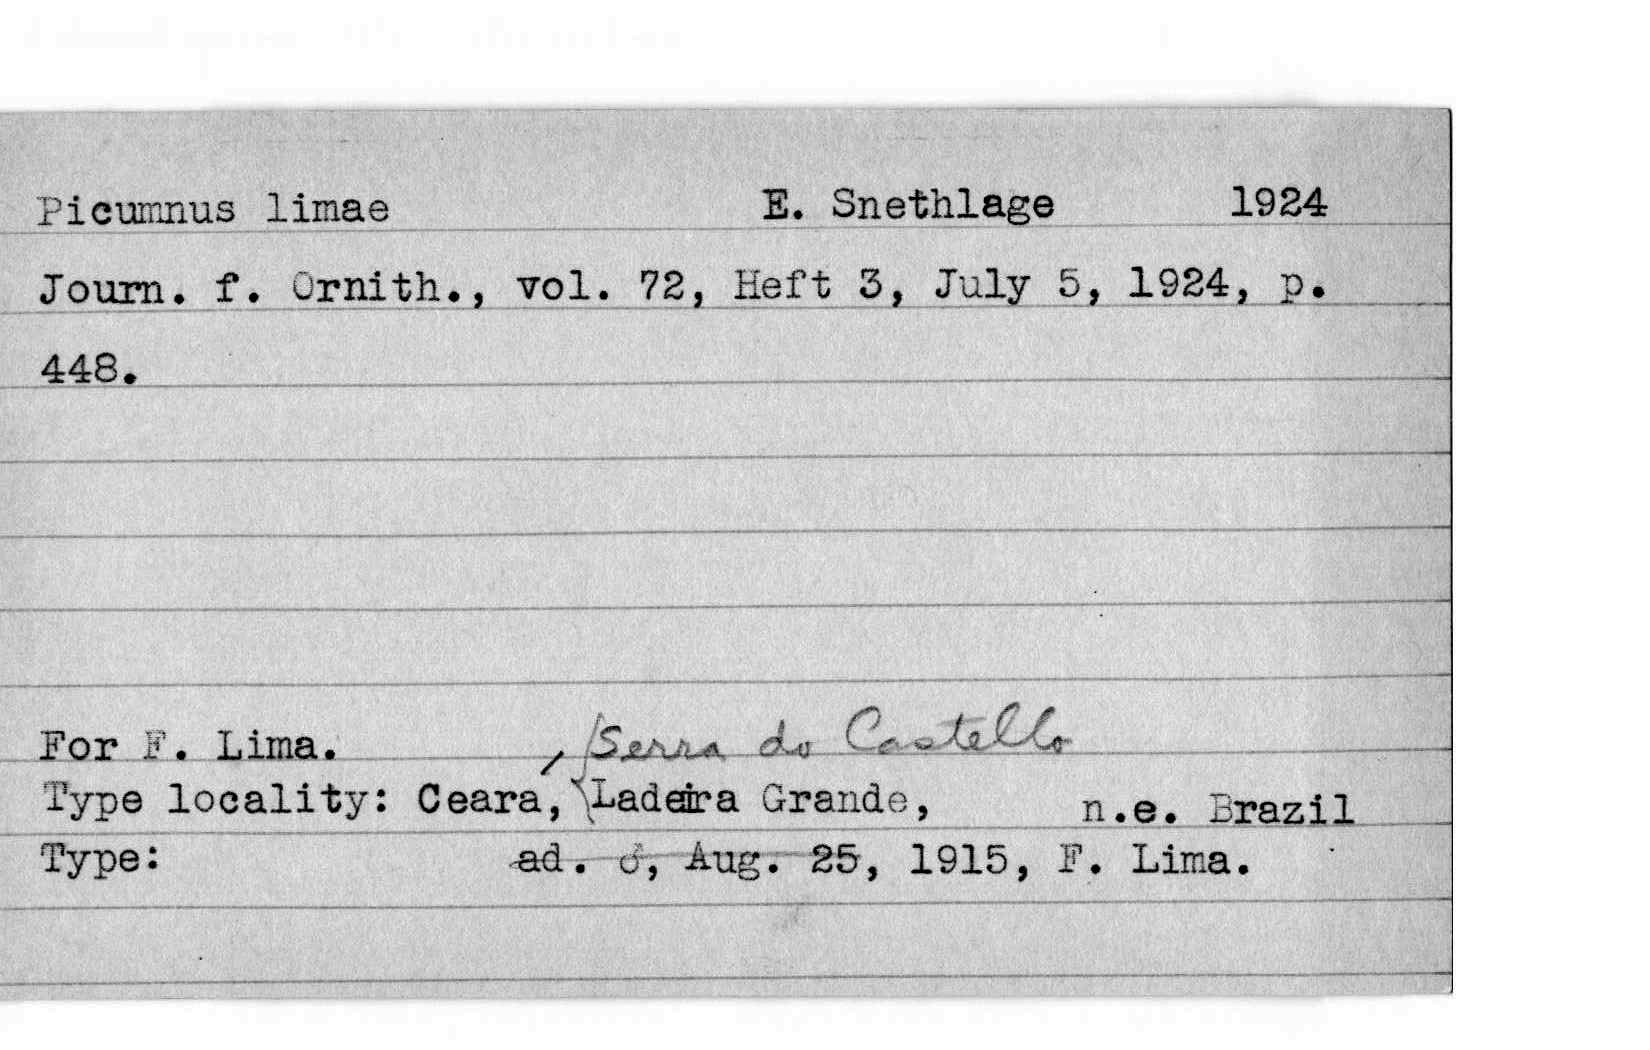 Picumnus limae E. Snethlage 1924
Journ. f. Ornith., vol. 72, Heft 3, July 5, 1924, p.
448.
For F. Lima. , Serra do Castello
Type locality: Ceara, Ladeira Grande, n.e. Brazil
Type: ad. ♂, Aug. 25, 1915, F. Lima.